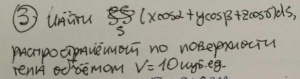 ③ Найти ∯ (x cosα + y cosβ + z cosγ) ds,
S
распространённый по поверхности
тела объёмом V = 10 куб. ед.